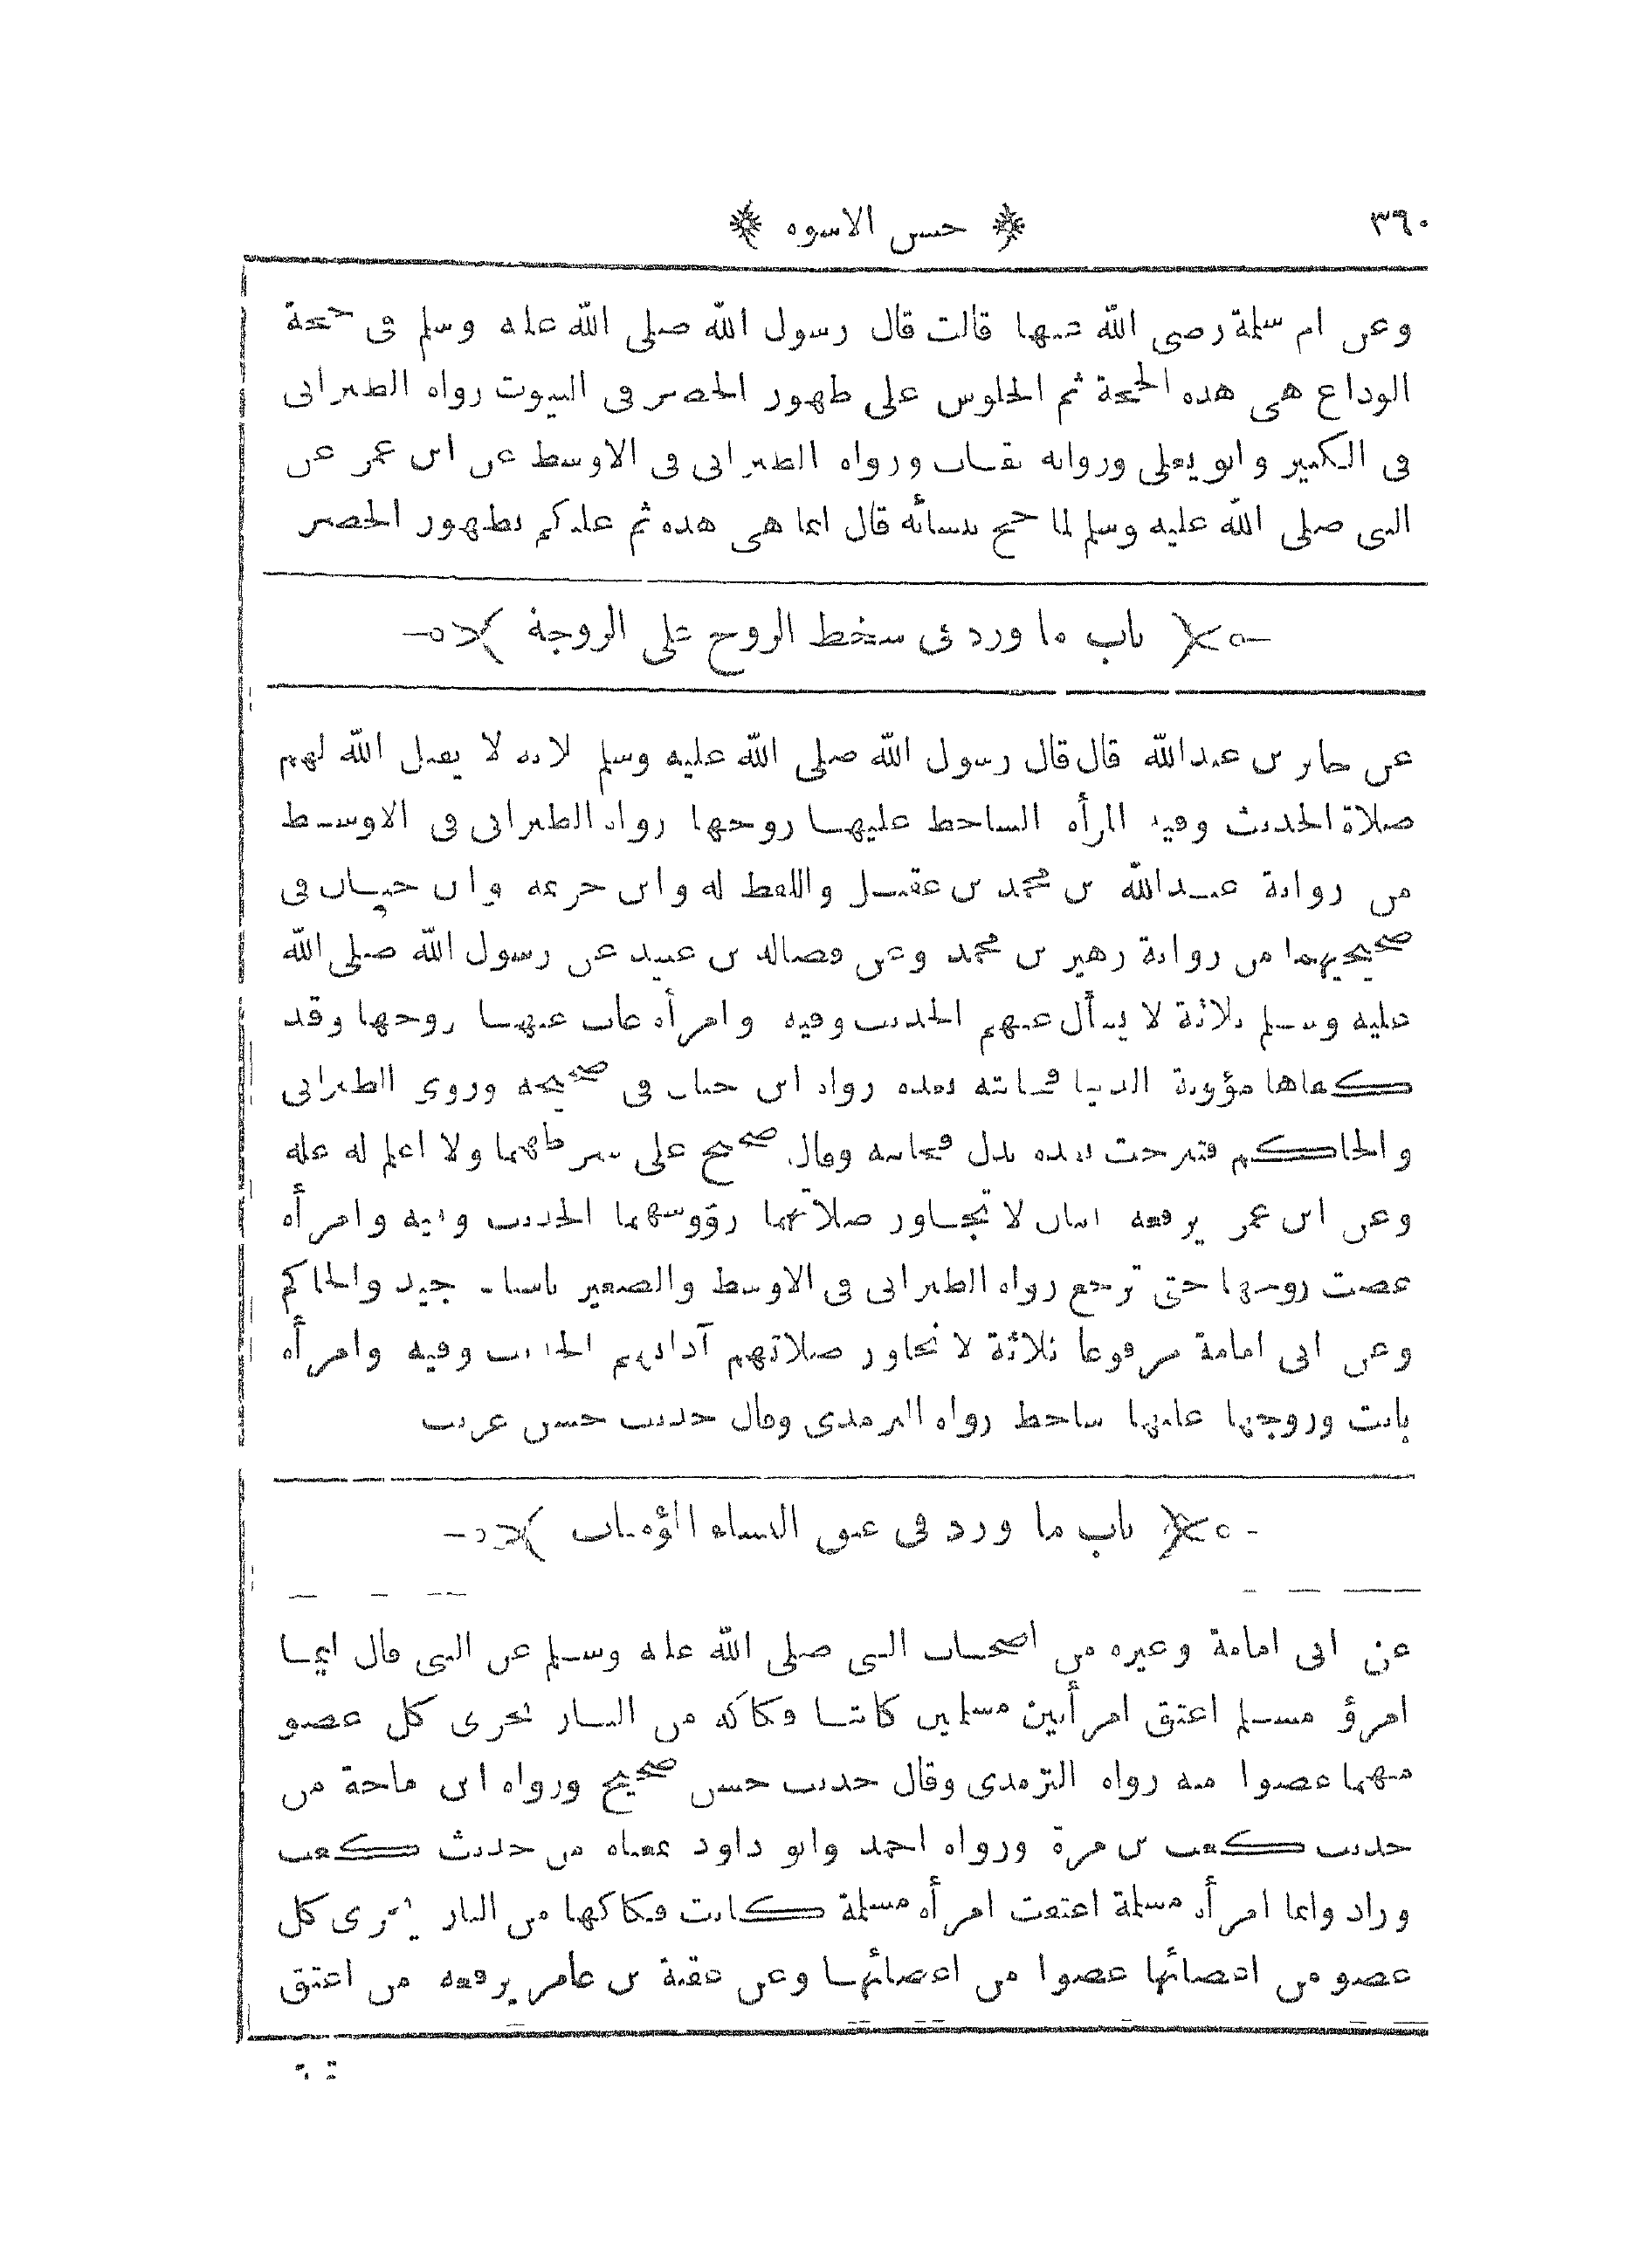 ٣٦٠ حسن الاسوة
وعن ام سلمة رضى الله عنها قالت قال رسول الله صلى الله عليه وسلم فى حجة
الوداع هى هذه الحجة ثم الجلوس على ظهور الحصر فى البيوت رواه الطبرانى
فى الكبير وابو يعلى ورواته ثقات ورواه الطبرانى فى الاوسط عن ابن عمر عن
النبى صلى الله عليه وسلم لما حج بنسائه قال انما هى هذه ثم عليكم بظهور الحصر
باب ما ورد فى سخط الزوج على الزوجة
عن جابر بن عبدالله قال قال رسول الله صلى الله عليه وسلم ثلاثة لا يقبل الله لهم
صلاة الحديث وفيه المرأة الساخط عليها زوجها رواه الطبرانى فى الاوسط
من رواية عبدالله بن محمد بن عقيل واللفظ له وابن خزيمة وابن حبان فى
صحيحيهما من رواية زهير بن محمد وعن فضالة بن عبيد عن رسول الله صلى الله
عليه وسلم ثلاثة لا يسأل عنهم الحديث وفيه وامرأة غاب عنها زوجها وقد
كفاها مؤونة الدنيا فخانته بعده رواه ابن حبان فى صحيحه وروى الطبرانى
والحاكم فتبرجت بعده بدل فخانته وقال صحيح على شرطهما ولا اعلم له علة
وعن ابن عمر يرفعه اثنان لا تجاوز صلاتهما رؤوسهما الحديث وفيه وامرأة
عصت زوجها حتى ترجع رواه الطبرانى فى الاوسط والصغير باسناد جيد والحاكم
وعن ابى امامة مرفوعا ثلاثة لا تجاوز صلاتهم آذانهم الحديث وفيه وامرأة
باتت وزوجها عليها ساخط رواه الترمذى وقال حديث حسن غريب
باب ما ورد فى عتق النساء المؤمنات
عن ابى امامة وغيره من اصحاب النبى صلى الله عليه وسلم عن النبى قال ايما
امرؤ مسلم اعتق امرأتين مسلمتين كانتا فكاكه من النار يجزى كل عضو
منهما عضوا منه رواه الترمذى وقال حديث حسن صحيح ورواه ابن ماجة من
حديث كعب بن مرة ورواه احمد وابو داود بمعناه من حديث كعب
وزاد وايما امرأة مسلمة اعتقت امرأة مسلمة كانت فكاكها من النار يجزى كل
عضو من اعضائها عضوا من اعضائها وعن عقبة بن عامر يرفعه من اعتق